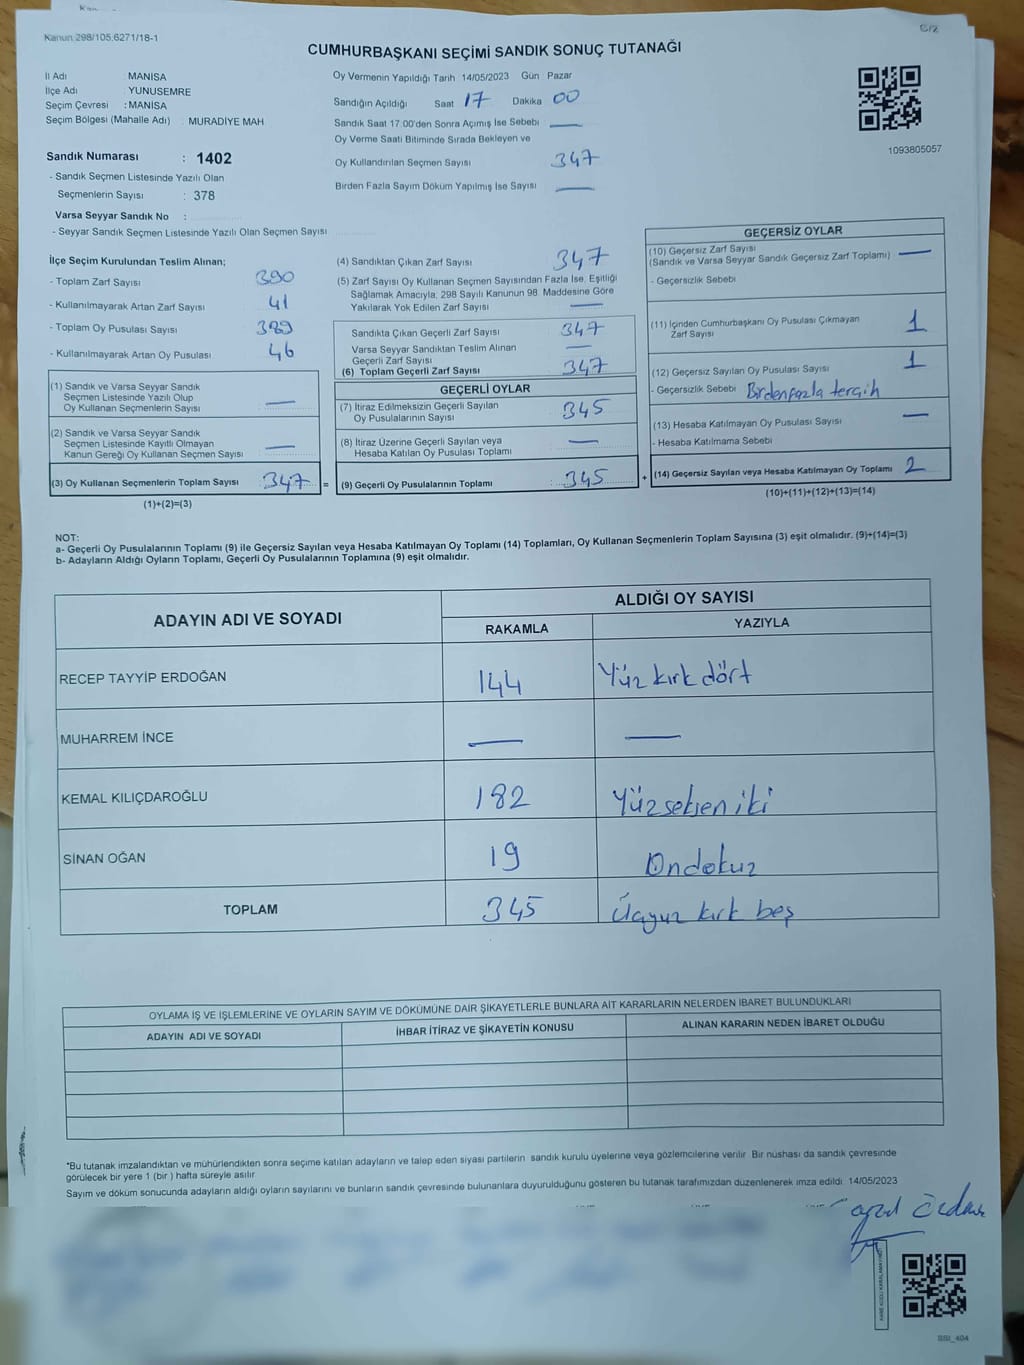 Kanun 298/105,6271/18-1
CUMHURBAŞKANI SEÇİMİ SANDIK SONUÇ TUTANAĞI
İl Adı : MANİSA
İlçe Adı : YUNUSEMRE
Seçim Çevresi : MANİSA
Seçim Bölgesi (Mahalle Adı) : MURADİYE MAH
Sandık Numarası : 1402
- Sandık Seçmen Listesinde Yazılı Olan
Seçmenlerin Sayısı : 378
Varsa Seyyar Sandık No :
- Seyyar Sandık Seçmen Listesinde Yazılı Olan Seçmen Sayısı
Oy Vermenin Yapıldığı Tarih 14/05/2023 Gün Pazar
Sandığın Açıldığı Saat 17 Dakika 00
Sandık Saat 17:00'den Sonra Açımış İse Sebebi —
Oy Verme Saati Bitiminde Sırada Bekleyen ve
Oy Kullandırılan Seçmen Sayısı 347
Birden Fazla Sayım Döküm Yapılmış İse Sayısı —
1093805057
İlçe Seçim Kurulundan Teslim Alınan;
- Toplam Zarf Sayısı 390
- Kullanılmayarak Artan Zarf Sayısı 41
- Toplam Oy Pusulası Sayısı 389
- Kullanılmayarak Artan Oy Pusulası 46
(1) Sandık ve Varsa Seyyar Sandık
Seçmen Listesinde Yazılı Olup
Oy Kullanan Seçmenlerin Sayısı —
(2) Sandık ve Varsa Seyyar Sandık
Seçmen Listesinde Kayıtlı Olmayan
Kanun Gereği Oy Kullanan Seçmen Sayısı —
(3) Oy Kullanan Seçmenlerin Toplam Sayısı 347 =
(1)+(2)=(3)
(4) Sandıktan Çıkan Zarf Sayısı 347
(5) Zarf Sayısı Oy Kullanan Seçmen Sayısından Fazla İse, Eşitliği
Sağlamak Amacıyla, 298 Sayılı Kanunun 98. Maddesine Göre
Yakılarak Yok Edilen Zarf Sayısı —
Sandıkta Çıkan Geçerli Zarf Sayısı 347
Varsa Seyyar Sandıktan Teslim Alınan
Geçerli Zarf Sayısı —
(6) Toplam Geçerli Zarf Sayısı 347
GEÇERLİ OYLAR
(7) İtiraz Edilmeksizin Geçerli Sayılan
Oy Pusulalarının Sayısı 345
(8) İtiraz Üzerine Geçerli Sayılan veya
Hesaba Katılan Oy Pusulası Toplamı —
(9) Geçerli Oy Pusulalarının Toplamı 345 +
GEÇERSİZ OYLAR
(10) Geçersiz Zarf Sayısı
(Sandık ve Varsa Seyyar Sandık Geçersiz Zarf Toplamı) —
- Geçersizlik Sebebi
(11) İçinden Cumhurbaşkanı Oy Pusulası Çıkmayan
Zarf Sayısı 1
(12) Geçersiz Sayılan Oy Pusulası Sayısı 1
- Geçersizlik Sebebi Birdenfazla tercih
(13) Hesaba Katılmayan Oy Pusulası Sayısı —
- Hesaba Katılmama Sebebi
(14) Geçersiz Sayılan veya Hesaba Katılmayan Oy Toplamı 2
(10)+(11)+(12)+(13)=(14)
NOT:
a- Geçerli Oy Pusulalarının Toplamı (9) ile Geçersiz Sayılan veya Hesaba Katılmayan Oy Toplamı (14) Toplamları, Oy Kullanan Seçmenlerin Toplam Sayısına (3) eşit olmalıdır. (9)+(14)=(3)
b- Adayların Aldığı Oyların Toplamı, Geçerli Oy Pusulalarının Toplamına (9) eşit olmalıdır.
ADAYIN ADI VE SOYADI
ALDIĞI OY SAYISI
RAKAMLA YAZIYLA
RECEP TAYYİP ERDOĞAN 144 Yüz kırk dört
MUHARREM İNCE — —
KEMAL KILIÇDAROĞLU 182 Yüzseksen iki
SİNAN OĞAN 19 Ondokuz
TOPLAM 345 Üçyüz kırk beş
OYLAMA İŞ VE İŞLEMLERİNE VE OYLARIN SAYIM VE DÖKÜMÜNE DAİR ŞİKAYETLERLE BUNLARA AİT KARARLARIN NELERDEN İBARET BULUNDUKLARI
ADAYIN ADI VE SOYADI İHBAR İTİRAZ VE ŞİKAYETİN KONUSU ALINAN KARARIN NEDEN İBARET OLDUĞU
"Bu tutanak imzalandıktan ve mühürlendikten sonra seçime katılan adayların ve talep eden siyasi partilerin sandık kurulu üyelerine veya gözlemcilerine verilir. Bir nüshası da sandık çevresinde
görülecek bir yere 1 (bir ) hafta süreyle asılır.
Sayım ve döküm sonucunda adayların aldığı oyların sayılarını ve bunların sandık çevresinde bulunanlara duyurulduğunu gösteren bu tutanak tarafımızdan düzenlenerek imza edildi. 14/05/2023